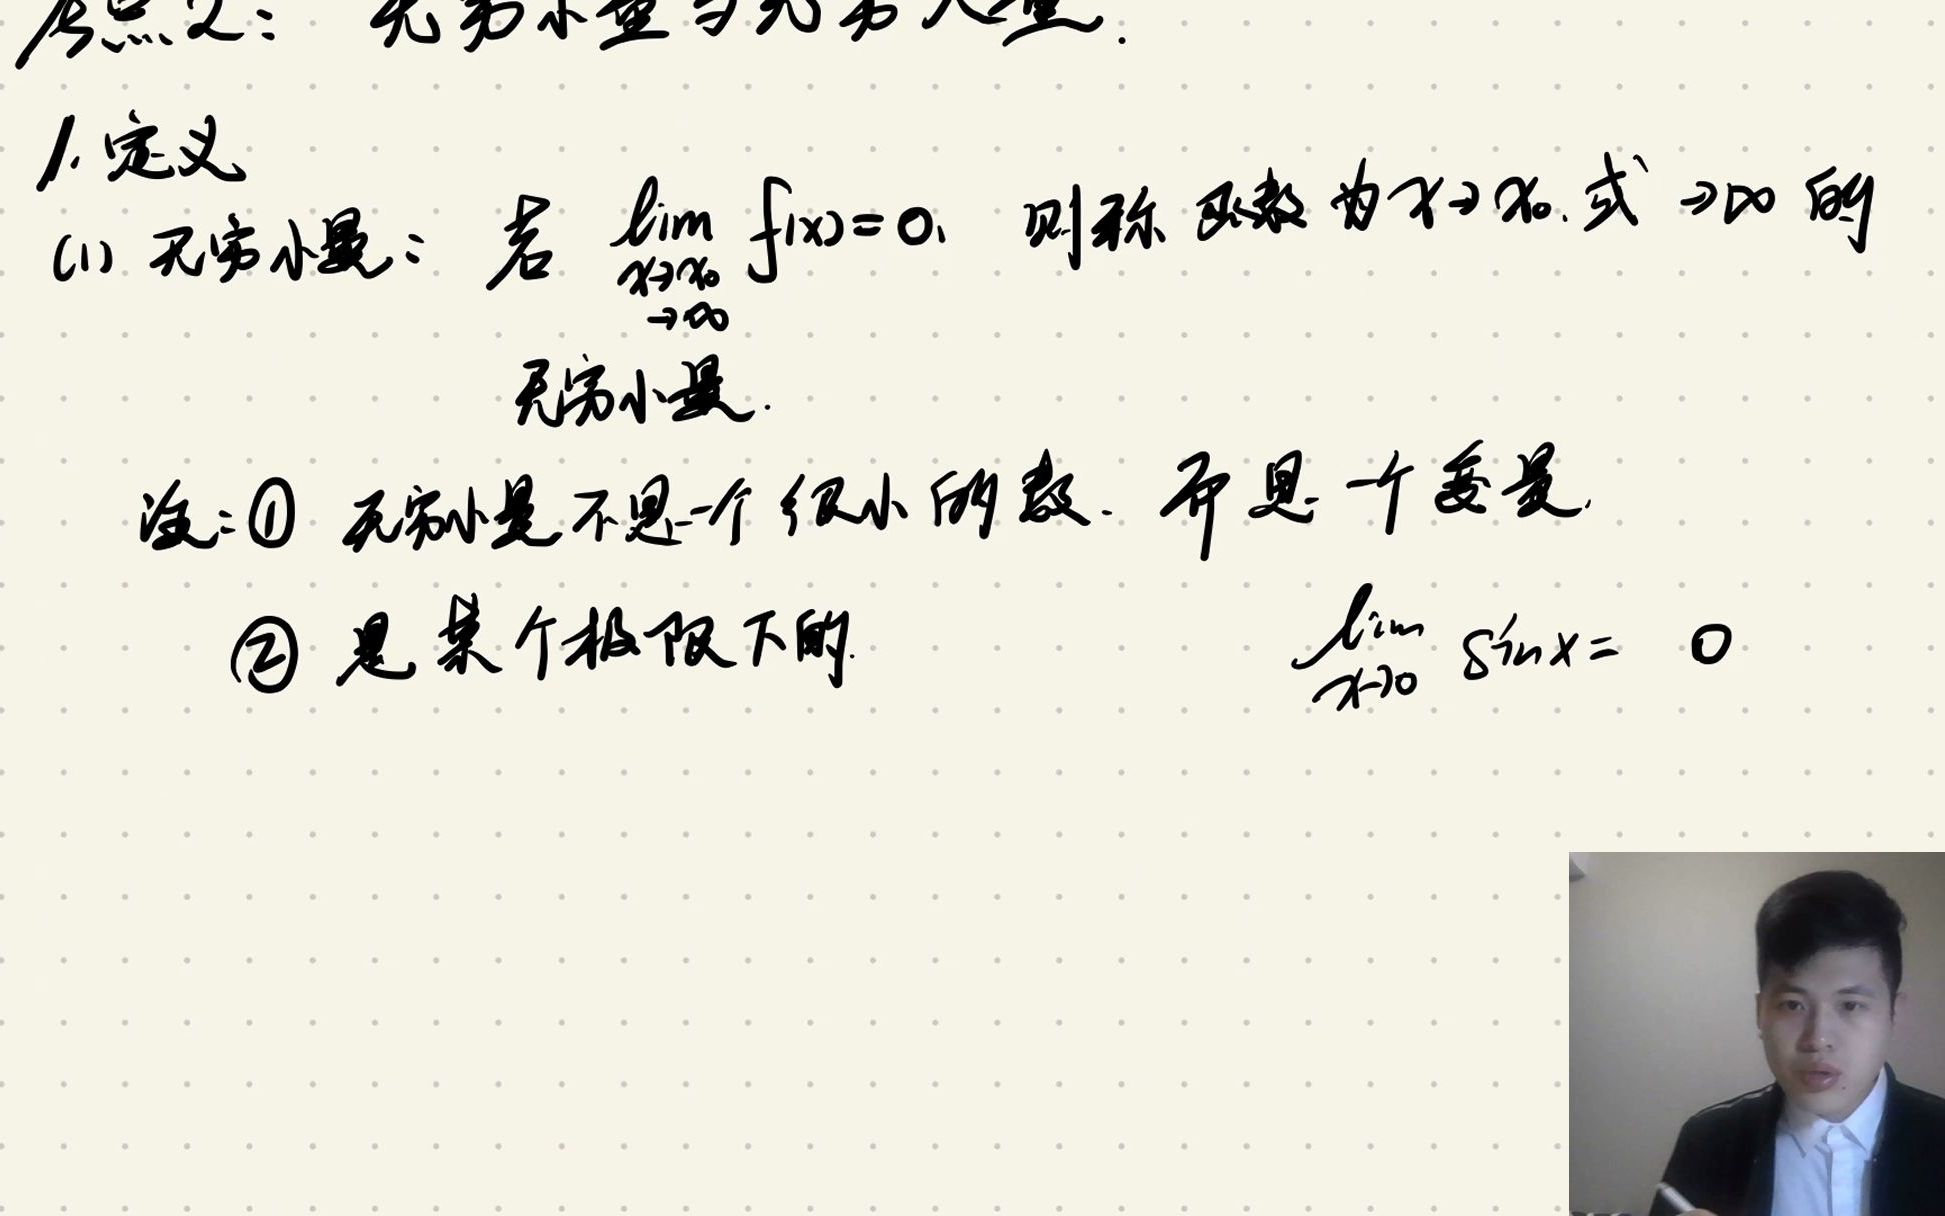 考点2: 无穷小量与无穷大量.
1. 定义
(1) 无穷小量: 若 lim f(x)=0, 则称函数为 x→x₀.或→∞ 的
x→x₀
→∞
无穷小量.
注:① 无穷小量不是一个很小的数. 而是一个变量.
② 是某个极限下的. lim sinx= 0
x→0